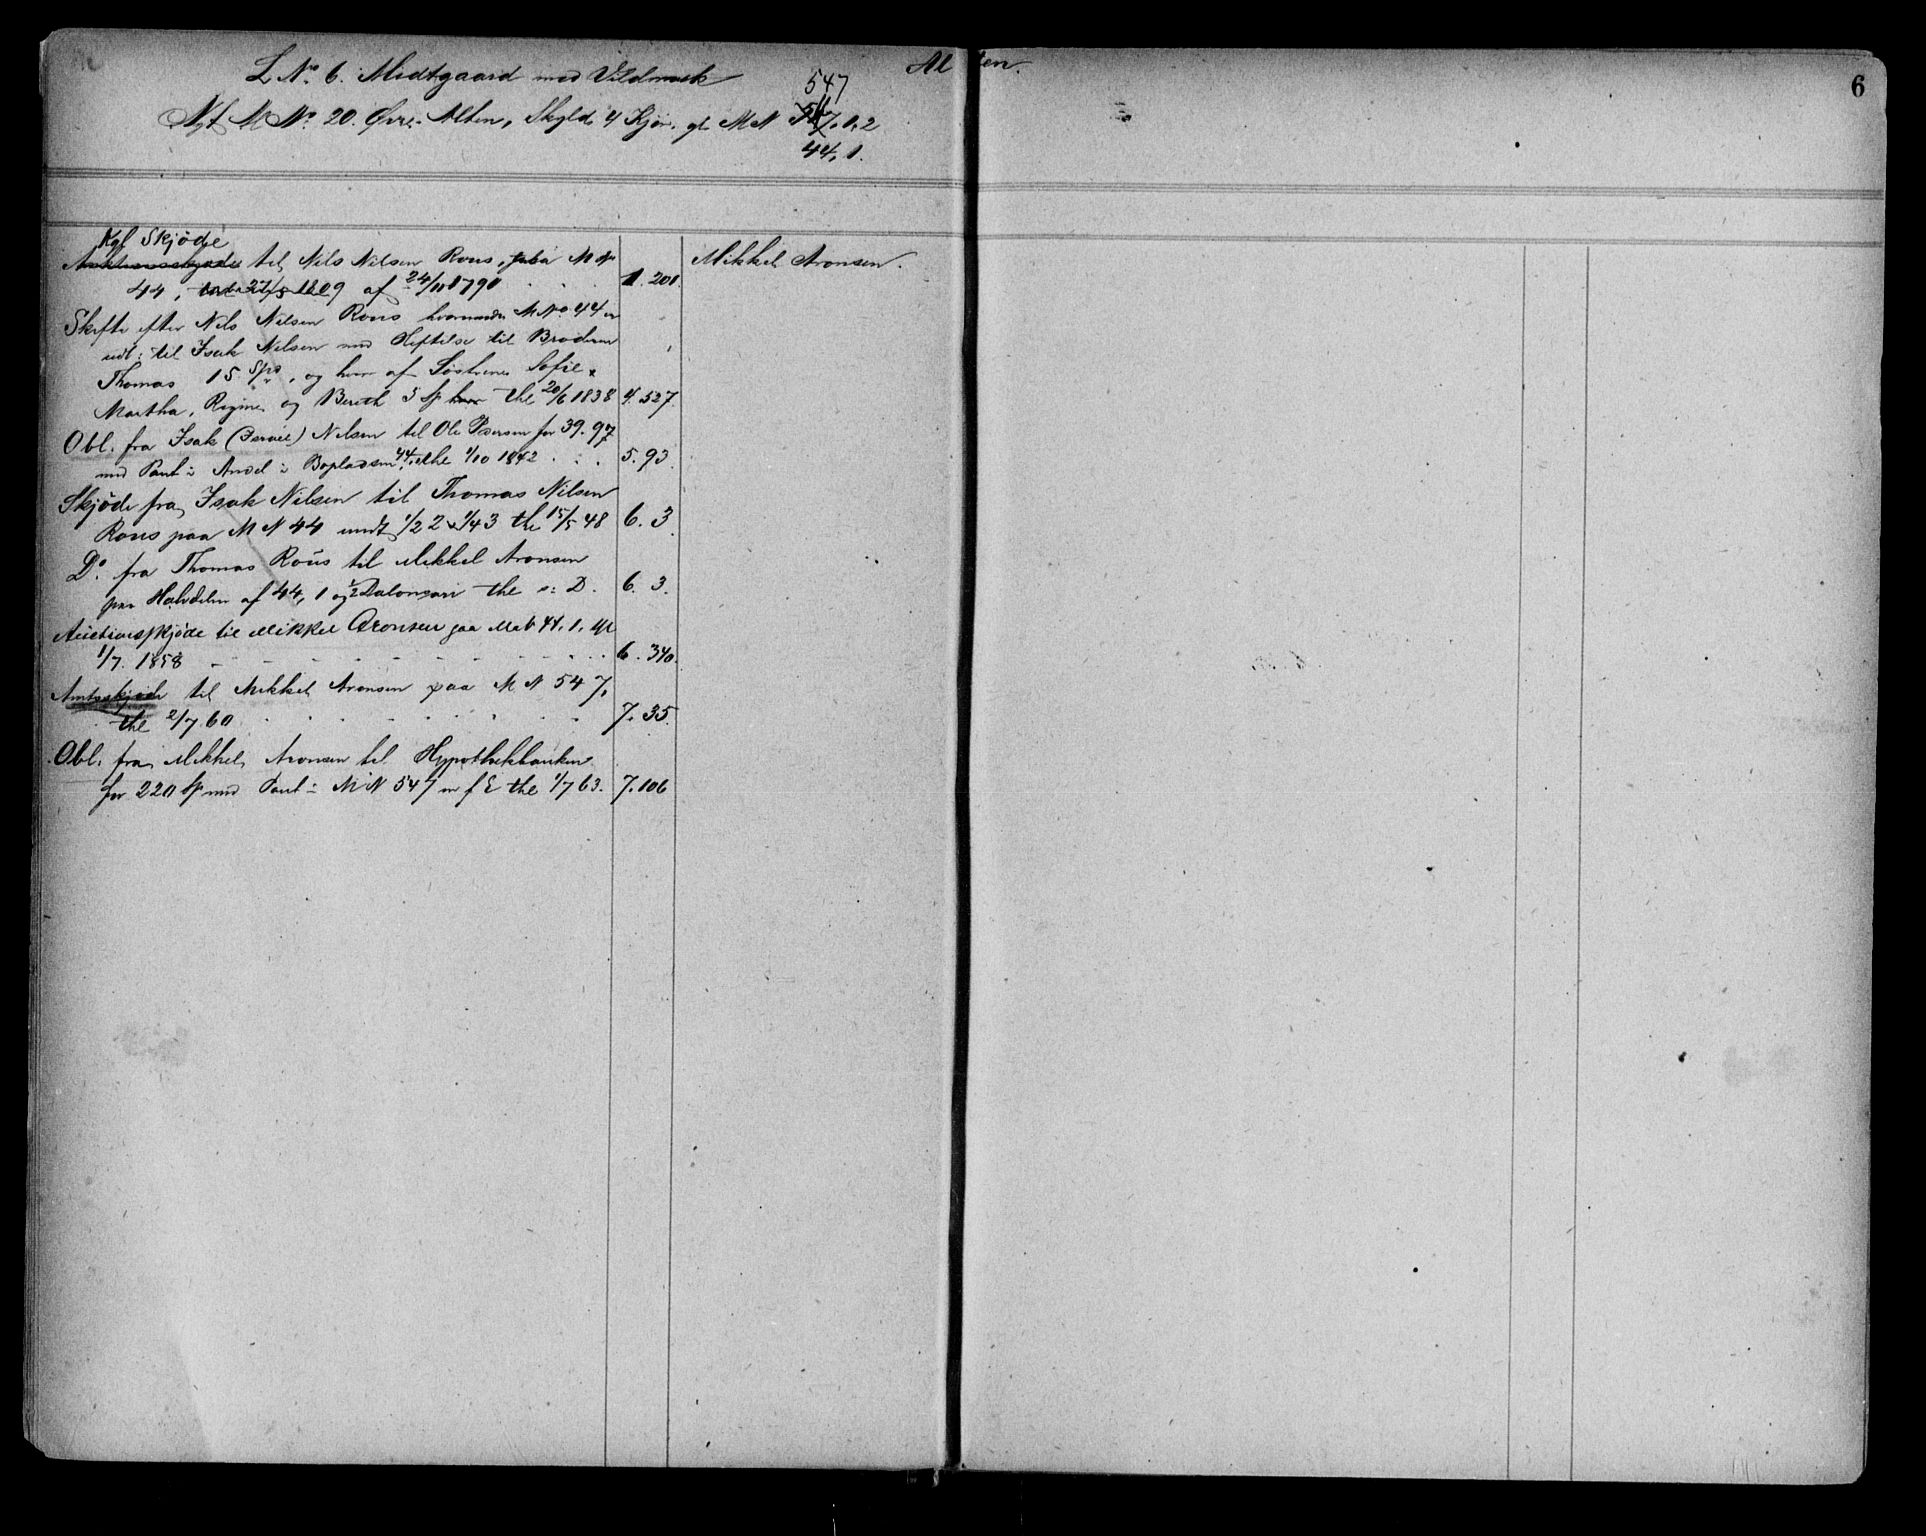 Alten.
6
L No 6. Midtgaard med Vildmark
547
Nyt M No 20. Øvre Alten, Skyld 4 Kjør. gl M N 547, 1, 2
44, 1.
Kgl Skjöde
Auktionsskjøde til Nils Nilsen Rous, paa M No
44, 27/5 1809 af 24/10 1790 . . . 1. 201
Mikkel Aronsen.
Skifte efter Nils Nilsen Rous hvorunder M No 44 er
udl: til Isak Nilsen med Heftelse til Broderen
Thomas 15 Spd, og hver af Søstrene Sofie,
Martha, Regine og Bereth 5 Sp hver thl 20/6 1838 4. 527.
Obl. fra Isak (Israel) Nilsen til Ole Pedersen for 39. 97
med Pant i Andel i Bopladsen 44, thl 1/10 1842 . . . 5. 93.
Skjöde fra Isak Nilsen til Thomas Nilsen
Rous paa M N 44 undt 1/2 2 & 1/4 3 thl 15/5 48 6. 3
Do. fra Thomas Roüs til Mikkel Aronsen
paa Halvdelen af 44, 1 og 1/2 thl s: D. 6. 3.
Auctionsskjøde til Mikkel Aronsen paa Mab 44. 1. thl
1/7. 1858 6. 340.
Amtsskjøde til Mikkel Aronsen paa M N 547,
thl 2/7 60 . . . 7. 35.
Obl. fra Mikkel Aronsen til Hypothekbanken
for 220 Sp med Pant i M N 547 m f E thl 1/7 63. 7. 106